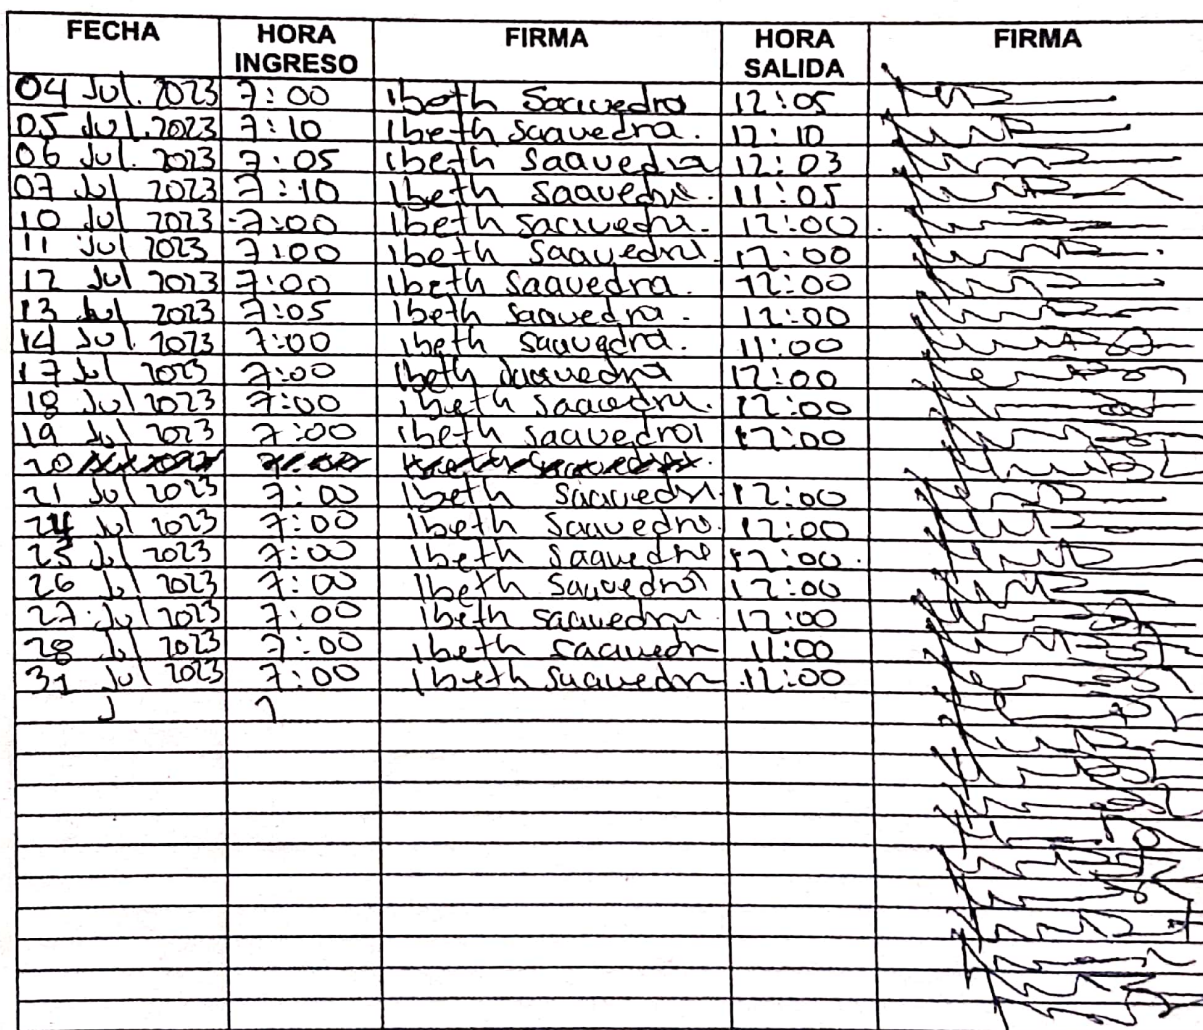 FECHA HORA INGRESO FIRMA HORA SALIDA FIRMA
04 Jul. 2023 7:00 Ibeth Saavedra 12:05
05 Jul. 2023 7:10 Ibeth Saavedra. 12:10
06 Jul. 2023 7:05 Ibeth Saavedra 12:03
07 Jul 2023 7:10 Ibeth Saavedra. 11:05
10 Jul 2023 7:00 Ibeth Saavedra. 12:00
11 Jul 2023 7:00 Ibeth Saavedra. 12:00
12 Jul 2023 7:00 Ibeth Saavedra. 12:00
13 Jul 2023 7:05 Ibeth Saavedra. 12:00
14 Jul 2023 7:00 Ibeth Saavedra. 11:00
17 Jul 2023 7:00 Ibeth Saavedra 12:00
18 Jul 2023 7:00 Ibeth Saavedra. 12:00
19 Jul 2023 7:00 Ibeth Saavedra 12:00
20 Jul 2023 7:00 Ibeth Saavedra.
21 Jul 2023 7:00 Ibeth Saavedra 12:00
24 Jul 2023 7:00 Ibeth Saavedra. 12:00
25 Jul 2023 7:00 Ibeth Saavedra 12:00.
26 Jul 2023 7:00 Ibeth Saavedra 12:00
27 Jul 2023 7:00 Ibeth Saavedra 12:00
28 Jul 2023 7:00 Ibeth Saavedra 11:00
31 Jul 2023 7:00 Ibeth Saavedra 12:00